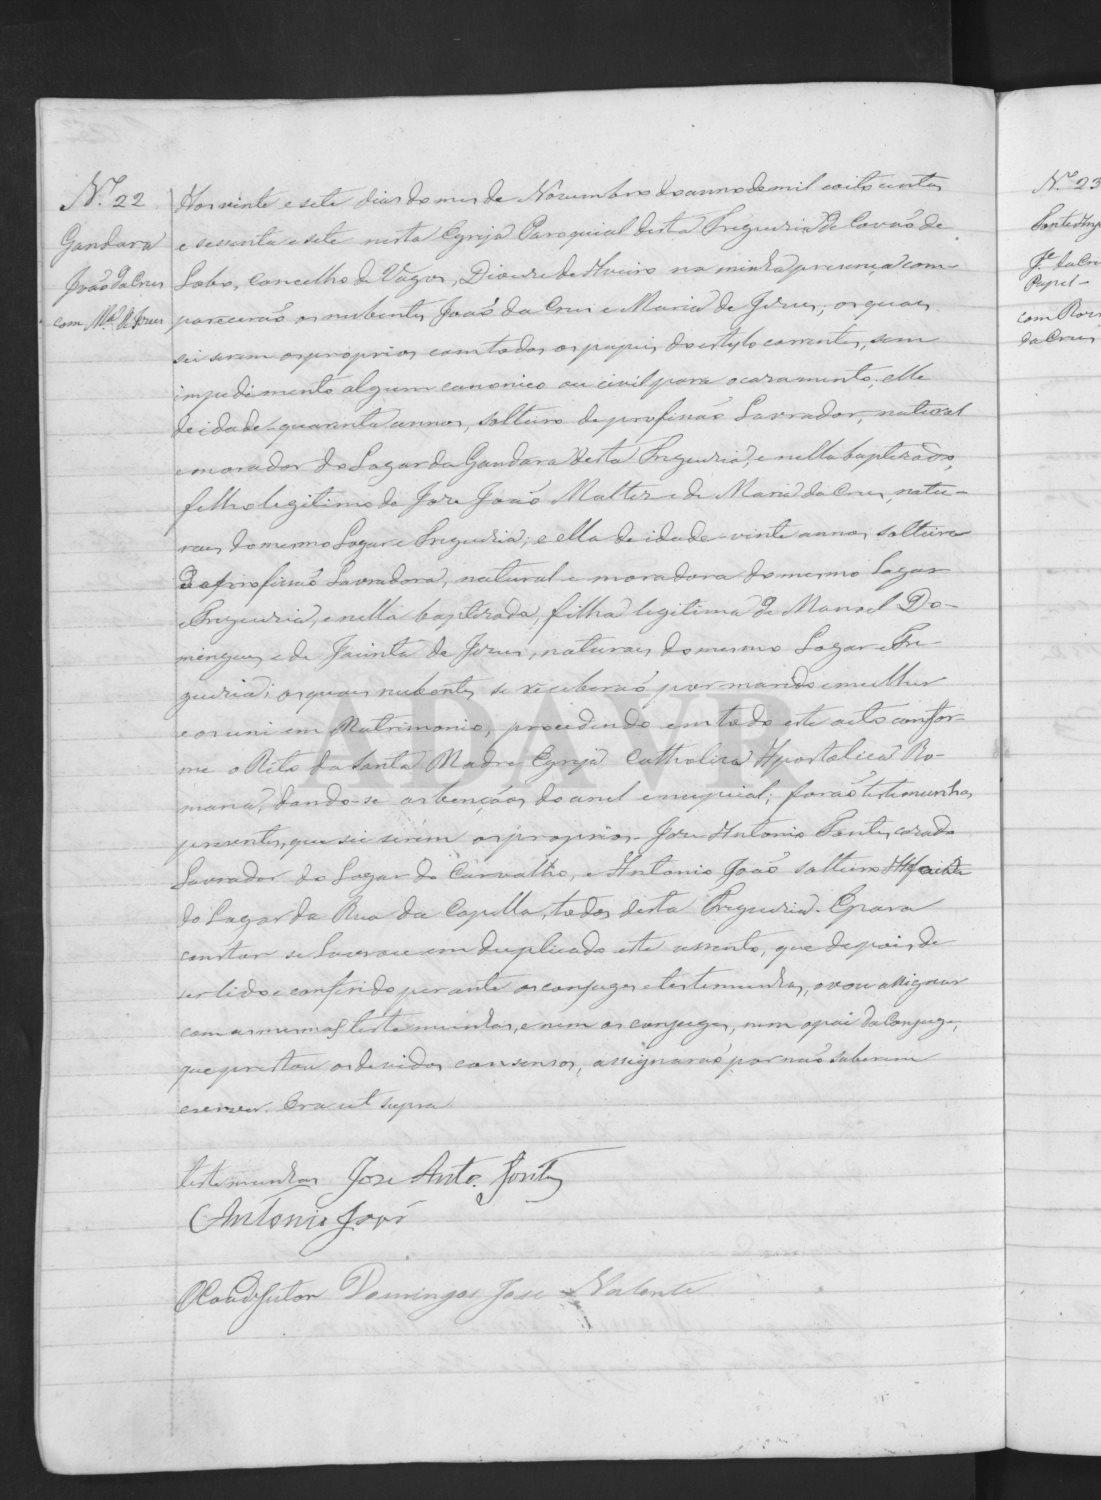 N.º 22
Gandara
João da Crus
com M.ª de Jesus
Aos vinte e sete dias do mes de Novembro do anno de mil oito centos
e sessenta e sete nesta Egreja Paroquial desta Freguezia de Covão de
Lobo, concelho de Vagos, Diocese de Aveiro na minha presença com-
parecerão os nubentes João da Crus e Maria de Jesus, os quaes
sei serem os proprios com todos os papeis do estylo correntes, sem
impedimento algum canonico ou civil para o casamento; elle
de idade quarenta annos, solteiro de profissão Lavrador, natural
e morador do Lugar da Gandara desta Freguezia, e nella baptizado,
filho legitimo de Jose João Maltez e de Maria da Crus, natu-
raes do mesmo Lugar e Freguezia; e ella de idade vinte annos solteira
de profissão Lavradora, natural e moradora do mesmo Lugar
e Freguezia, e nella baptizada, filha legitima de Manoel Do-
mingues e de Jacinta de Jesus, naturaes do mesmo Lugar e Fre-
guezia; os quaes nubentes se receberão por marido e mulher
e os uni em Matrimonio, procedendo em todo este acto confor-
me o Rito da Santa Madre Egreja Catholica Apostolica Ro-
mana, dando-se as bençãos do anel e nupcial; forão testemunhas
presentes, que sei serem os proprios Jose Antonio Fontes, casado
Lavrador do Lugar do Carvalho, e Antonio João solteiro
do Lugar da Rua da Capella, todos desta Freguezia. E para
constar se lavrou em duplicado este assento, que depois de
ser lido e conferido perante os conjuges e testemunhas, o vou assignar
com as mesmas testemunhas, e nem os conjuges, nem o pai da conjuge,
que prestou os devidos consensos, assignarão por não saberem
escrever. Era ut supra.
testemunhas Jose Anto. Fontes
Antonio João
O Coadjutor Domingos Jose Valente
N.º 23
J.e da Cru
Papel-
com Ros
da Crus
ADAVR